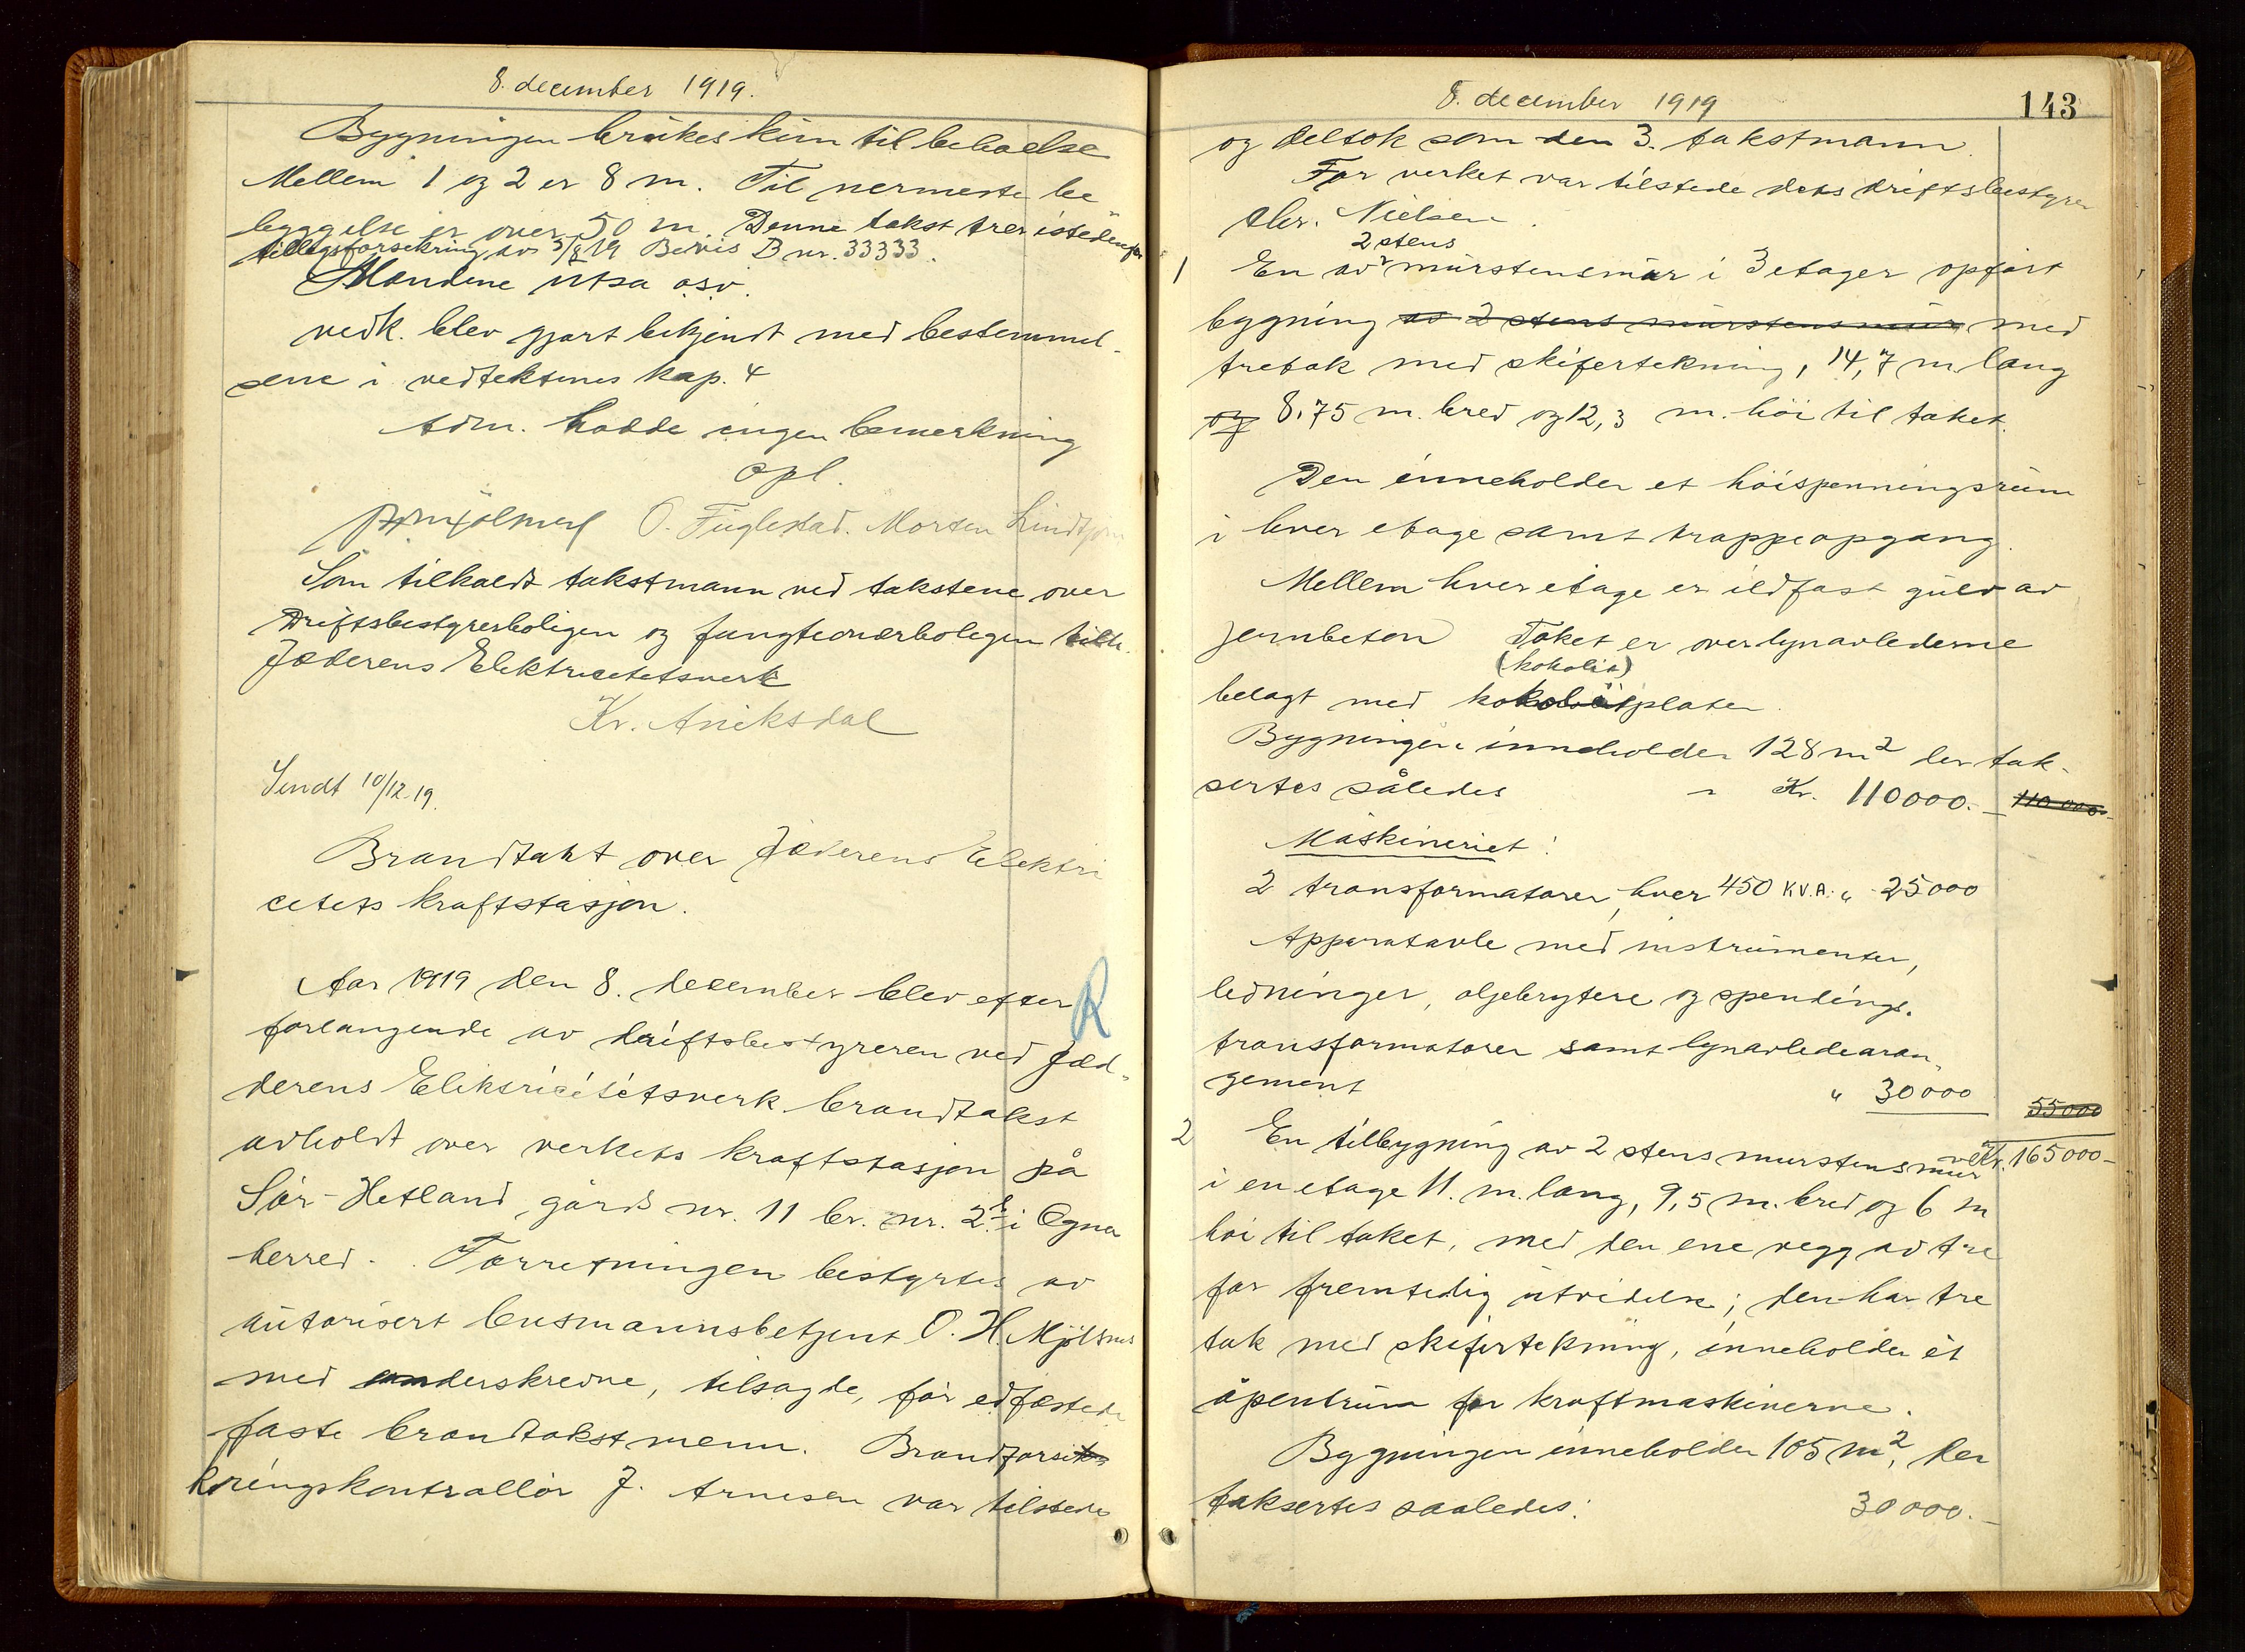 8. december 1919.
Bygningen brukes kun til beboelse
Mellem 1 og 2 er 8 m. Til nermeste be
byggelse er over 50 m. Denne takst trer istedenfor
tillegsforsekring av 3/8 19 Bevis B nr. 33333.
Mændene utsa osv.
vedk. blev gjort bekjendt med bestemmel-
sene i vedtektenes kap. 4
Adm. hadde ingen bemerkning
opl.
O. Fuglestad. Morten Lindtjørn
Som tilkaldt takstmann ved takstene over
Driftsbestyrerboligen og fungtionærboligen tilh.
Jæderens Elektricitetsverk
Kr. Aniksdal
Sendt 10/12 19.
Brandtakst over Jæderens Elektri
citets kraftstasjon.
Aar 1919 den 8. december blev efter
forlangende av driftsbestyreren ved Jæd-
derens Elektricitetsverk brandtakst
avholdt over verkets kraftstasjon på
Sør-Hetland, gårds nr. 11 br. nr. 2 i Ogna
herred. Forretningen bestyrtes av
autorisert lensmannsbetjent O. H. Mjølsnes
med underskrevne, tilsagde, før edfæstede
faste brandtakstmenn. Brandforse
kringskontrollør J. Arnesen var tilstede
8. december 1919
143
og deltok som den 3. takstmann.
For verket var tilstede dets driftsbestyrer
Chr. Nielsen.
2 stens
1 En av murstensmur i 3 etager opført
bygning av 2 stens murstensmur med
tretak med skifertekning, 14,7 m. lang
og 8,75 m. bred og 12,3 m. høi til taket.
Den inneholder et høispenningsrum
i hver etage samt trappeopgang.
Mellem hver etage er ildfast gulv av
jernbeton Taket er over lynavlederne
(kokolit)
belagt med kokolitplater.
Bygningen inneholder 128 m2 der tak-
sertes således " Kr. 110000.- 110 000.-
Maskineriet:
2 transformatorer, hver 450 K.V.A. " 25000
Apparatavle med instrumenter,
ledninger, oljebrytere og spendings-
transformatorer samt lynavledearan-
gement " 30000 55000
Kr. 165000-
2 En tilbygning av 2 stens murstensmur
i en etage 11. m. lang, 9,5 m. bred og 6 m
høi til taket, med den ene vegg av tre
for fremtidig utvidelse; den har tre
tak med skifertekning, inneholder et
åpentrum for kraftmaskinerne.
Bygningen inneholder 105 m2, der
taksertes saaledes: 30000.-